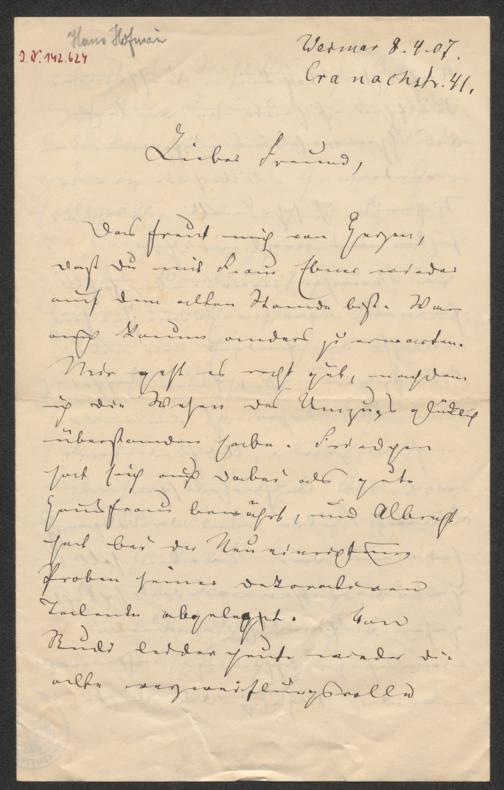 Hans Hofman
I.N. 142.624
Weimar 8.4.07.
Cranachstr. 41.
Lieber Freund,
Das freut mich von Herzen,
daß Du mit Frau Ebner wieder
auf dem alten Stande bist. War
auch kaum anders zu erwarten.
Mir geht es recht gut, nachdem
ich die Wehen des Umzugs glücklich
überstanden habe. Friedchen
hat sich auch dabei als gute
Hausfrau bewährt, und Albrecht
hat bei der Neueinrichtung
Proben seines dekorativen
Talents abgelegt. Von
Rudi leider heute wieder die
alte verzweiflungsvolle